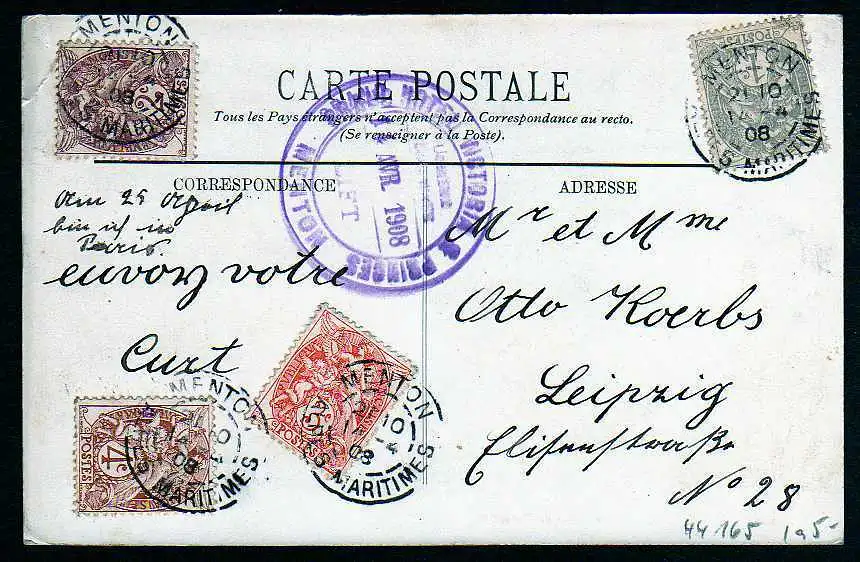 MENTON
CARTE POSTALE
Tous les Pays étrangers n'acceptent pas la Correspondance au recto.
(Se renseigner à la Poste).
CORRESPONDANCE
ADRESSE
MENTON
21 10
14 4
08
MARITIMES
MENTON
VICTORIA & PRINCES
AVR. 1908
LIFT
POSTES
08
MARITIMES
am 25 April
bin ich in
Paris.
envoy votre
Curt
Mr et Mme
Otto Koerbs
Leipzig
Elisenstraße
No 28
MENTON
10
08
MARITIMES
POSTES
MENTON
08
MARITIMES
POSTES
44165 1a5-